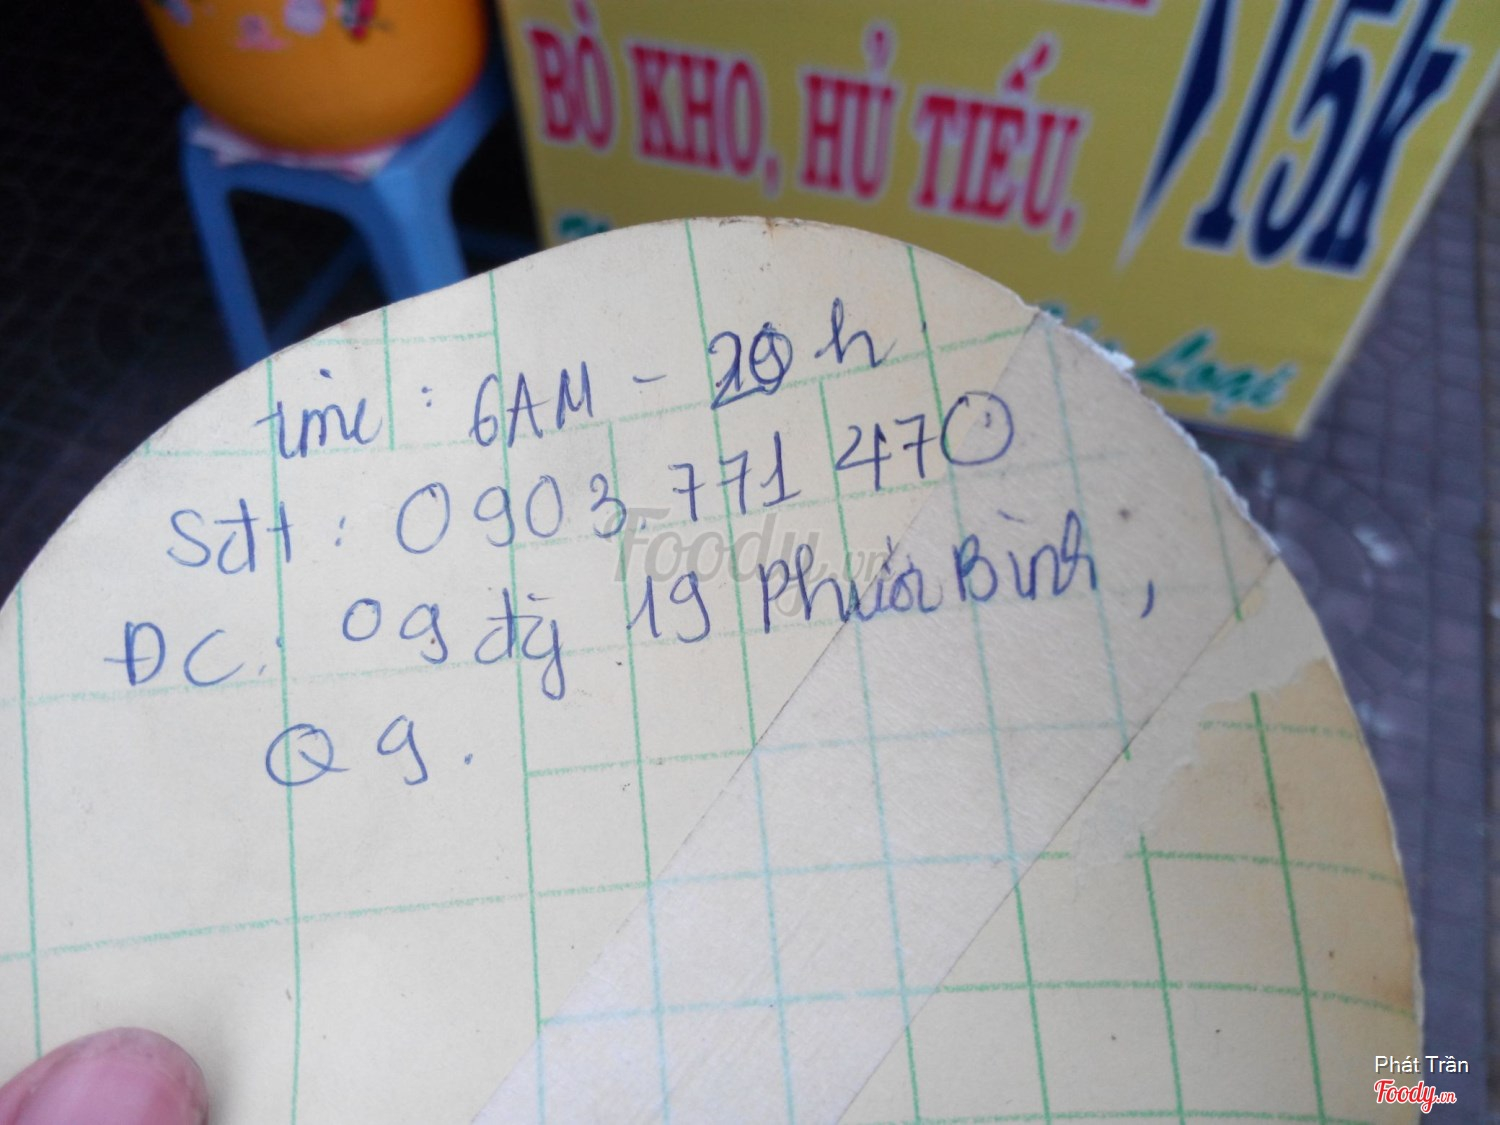 15k
BÒ KHO, HỦ TIẾU,
Loại
time: 6AM - 20 h
Sđt: 0903.771 470
ĐC: 09 đg 19 Phước Bình,
Q9.
Foody.vn
Phát Trần
Foody.vn